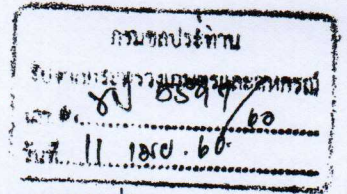 กรมชลประทาน
รับจากกระทรวงเกษตรและสหกรณ์
เลขที่ ..... /60
วันที่ 11 เมย. 60